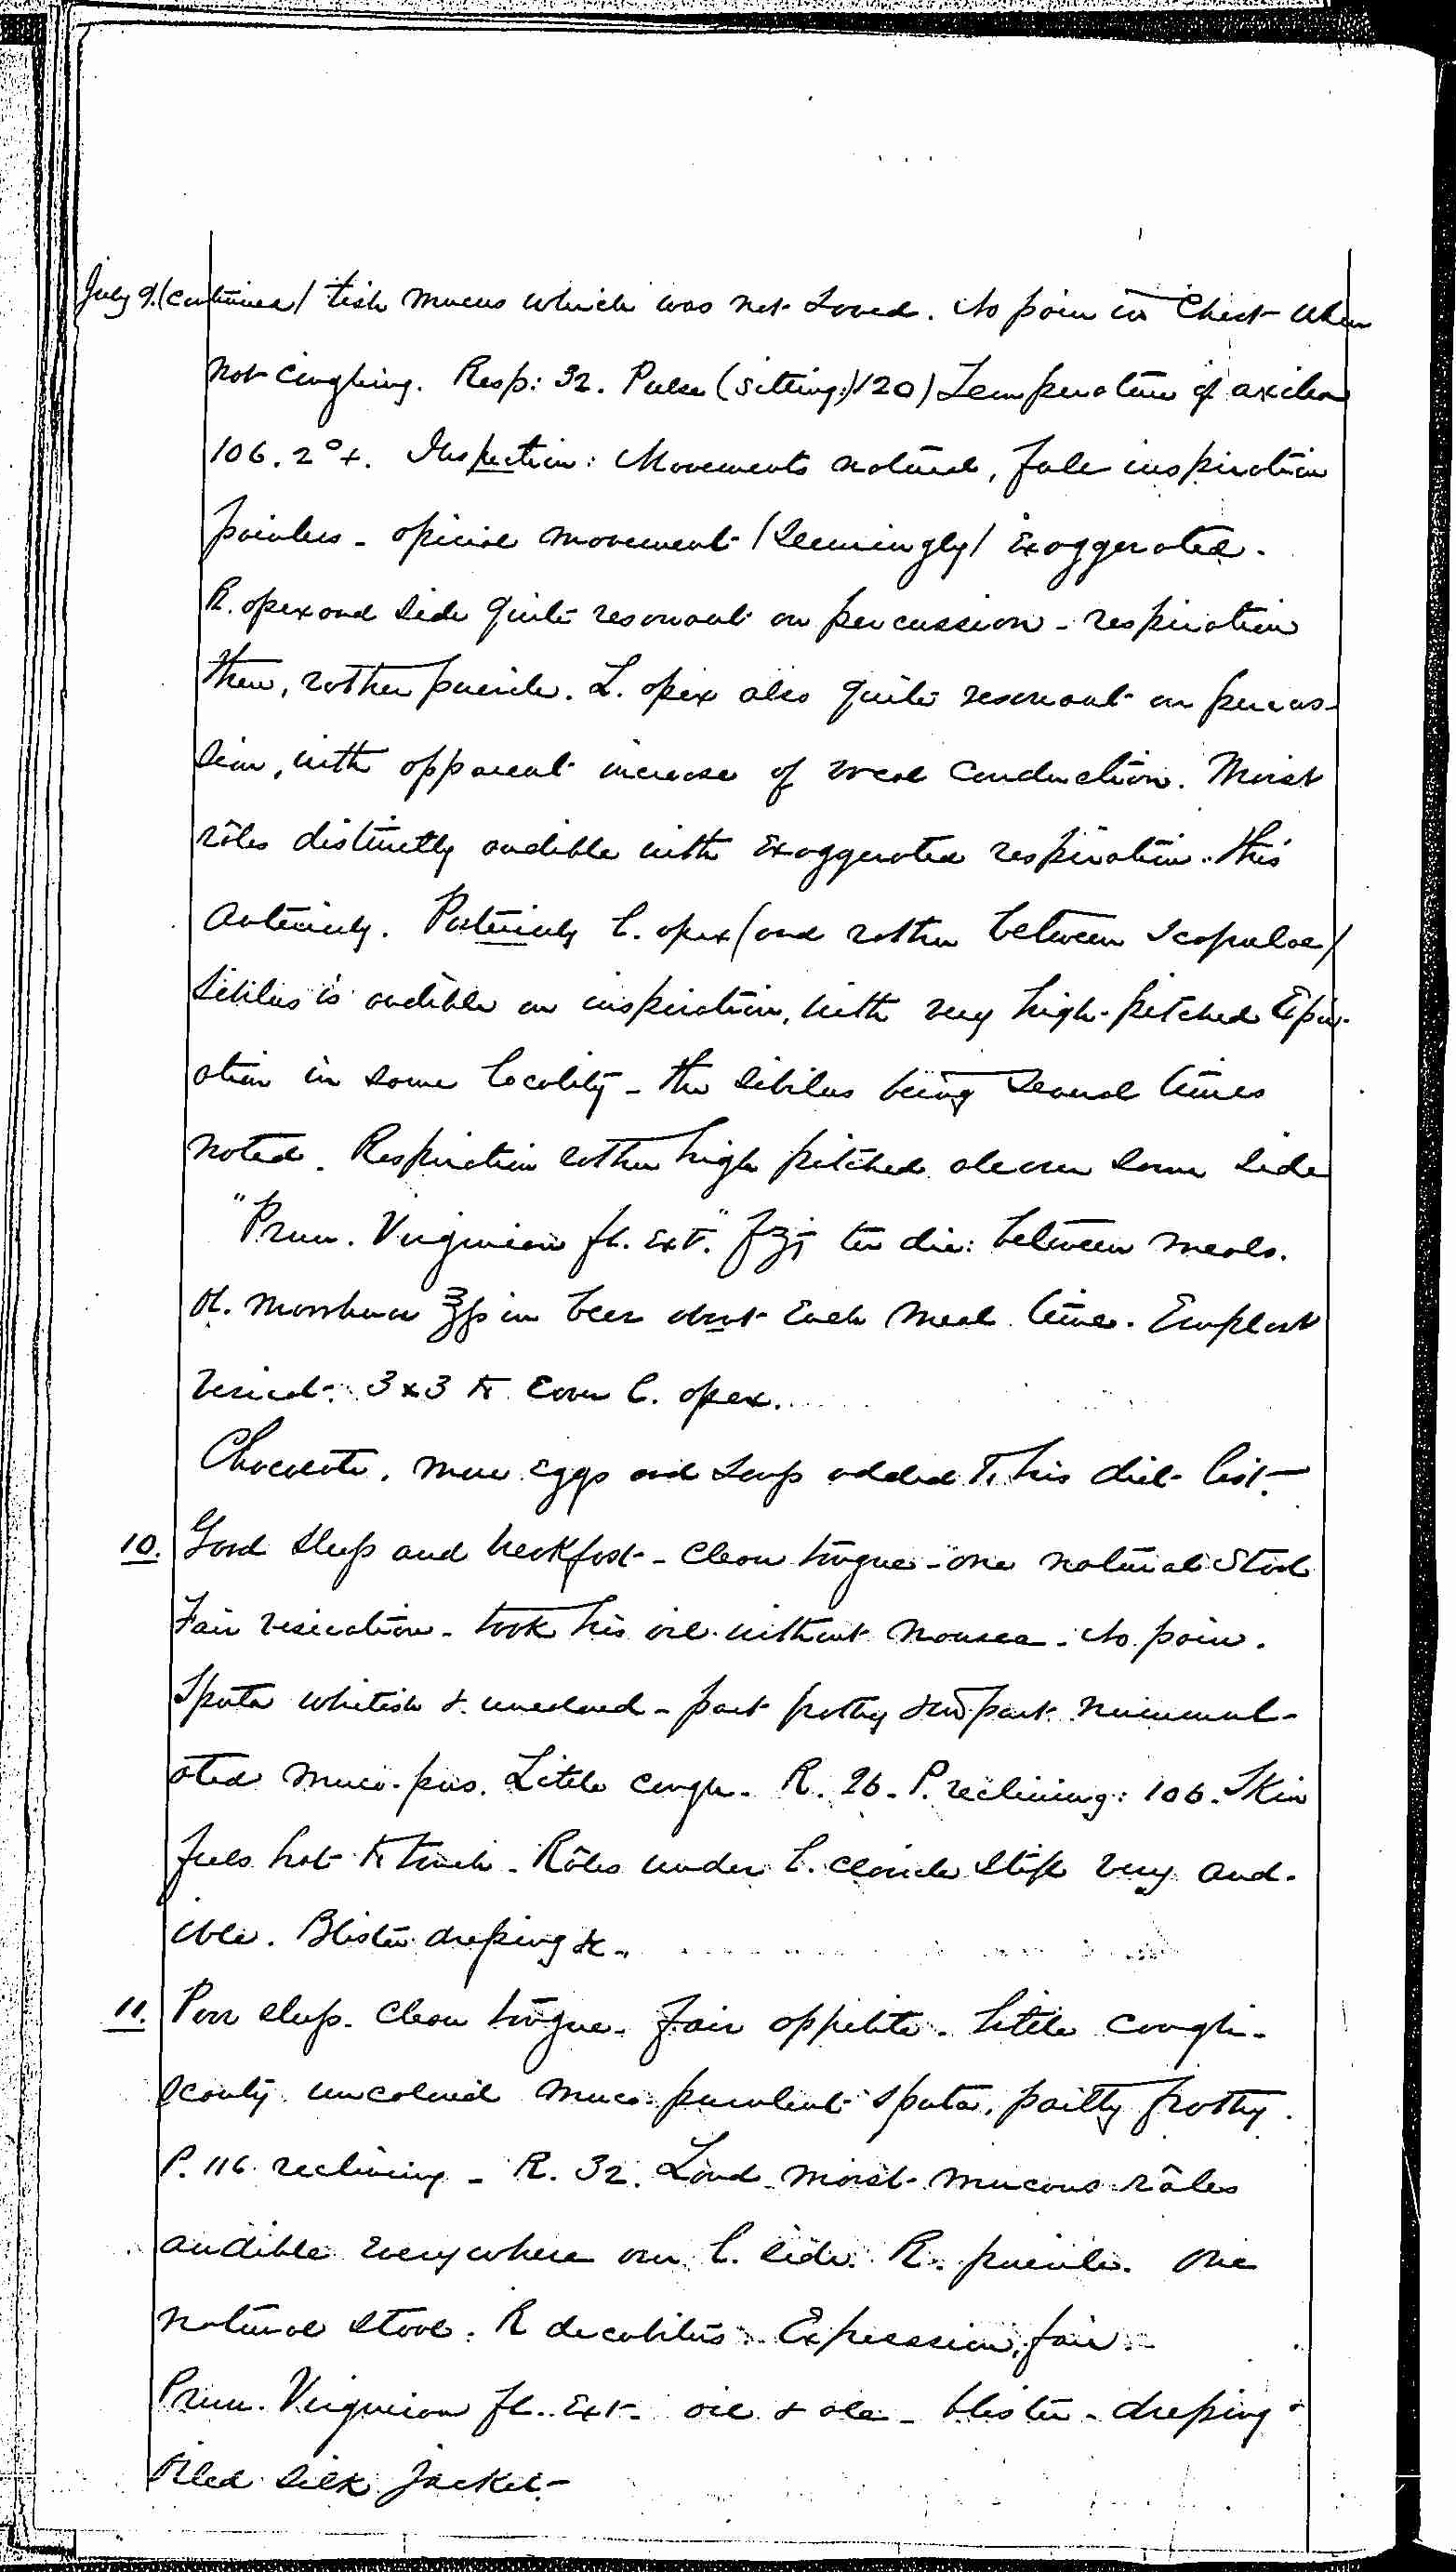 July 9. (continued) tish mucus which was not saved. No pain in chest when
not coughing. Resp: 32. Pulse (sitting:) 120) Temperature of axilla
106.2°+. Inspection: Movements natural, full inspiration
painless - apical movement (seemingly) exaggerated.
R. apex and side quite resonant on percussion - respiration
there, rather puerile. L. apex also quite resonant on percus-
sion, with apparent increase of vocal conduction. Moist
râles distinctly audible with exaggerated respiration. This
anteriorly. Posteriorly L. apex (and rather between scapulae)
sibilus is audible on inspiration, with very high-pitched expir-
ation in same locality - the sibilus being several times
noted. Respiration rather high pitched all over same side
"Prun. Virginian fl. Ext." fʒj ter die: between meals.
Ol. Morrhuae ℥ss in beer about each meal time. Emplast
vesicat. 3x3 to cover L. apex.
Chocolate, more eggs and soup added to his diet list.-
10. Good sleep and breakfast - clean tongue - one natural stool
Fair vesication - took his oil without nausea - No pain.
Sputa whitish & uncolored - part frothy and part nummul-
ated muco-pus. Little cough - R. 26 - P. reclining: 106. Skin
feels hot to touch - Râles under L. clavicle still very aud-
ible. Blister dressing &c -
11. Poor sleep. Clean tongue - fair appetite - little cough -
scanty uncolored muco purulent sputa, partly frothy.
P. 116 reclining - R. 32. Loud moist mucous râles
audible everywhere over L. side. R. puerile. One
natural stool. R decubitus. Expression, fair -
Prun. Virginian fl. Ext - oil & ale - blister-dressing &
oiled silk jacket -